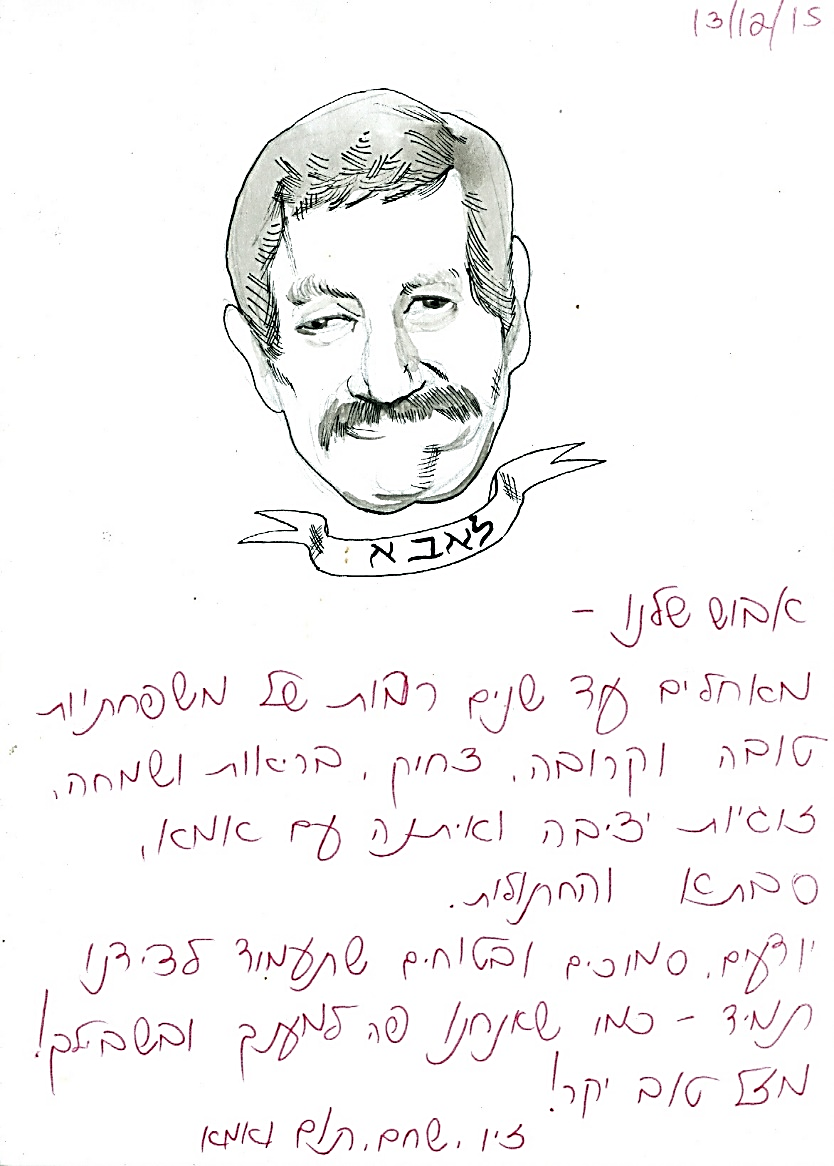 13/12/15
לאבא :
אבוש שלנו -
מאחלים עוד שנים רבות של משפחתיות
טובה וקרובה, צחוק, בריאות ושמחה,
זוגיות יציבה ואיתנה עם אמא,
סבתא והחתולות.
יודעים, סמוכים ובטוחים שתעמוד לצידנו
תמיד - כמו שאנחנו פה למענך ובשבילך!
מזל טוב יקר!
זיו, שחם, תום ואמא